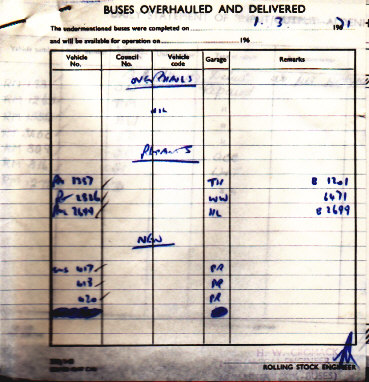 BUSES OVERHAULED AND DELIVERED
The undermentioned buses were completed on 1. 3. 196 71
and will be available for operation on 196
Vehicle No. Council No. Vehicle code Garage Remarks
OVERHAULS
NIL
REPAINTS
RM 1357 TH B 1201
RM WW 6471
RML 2699 HL B 2699
NEW
SMS 417 PR
418 AP
420 PR
ROLLING STOCK ENGINEER